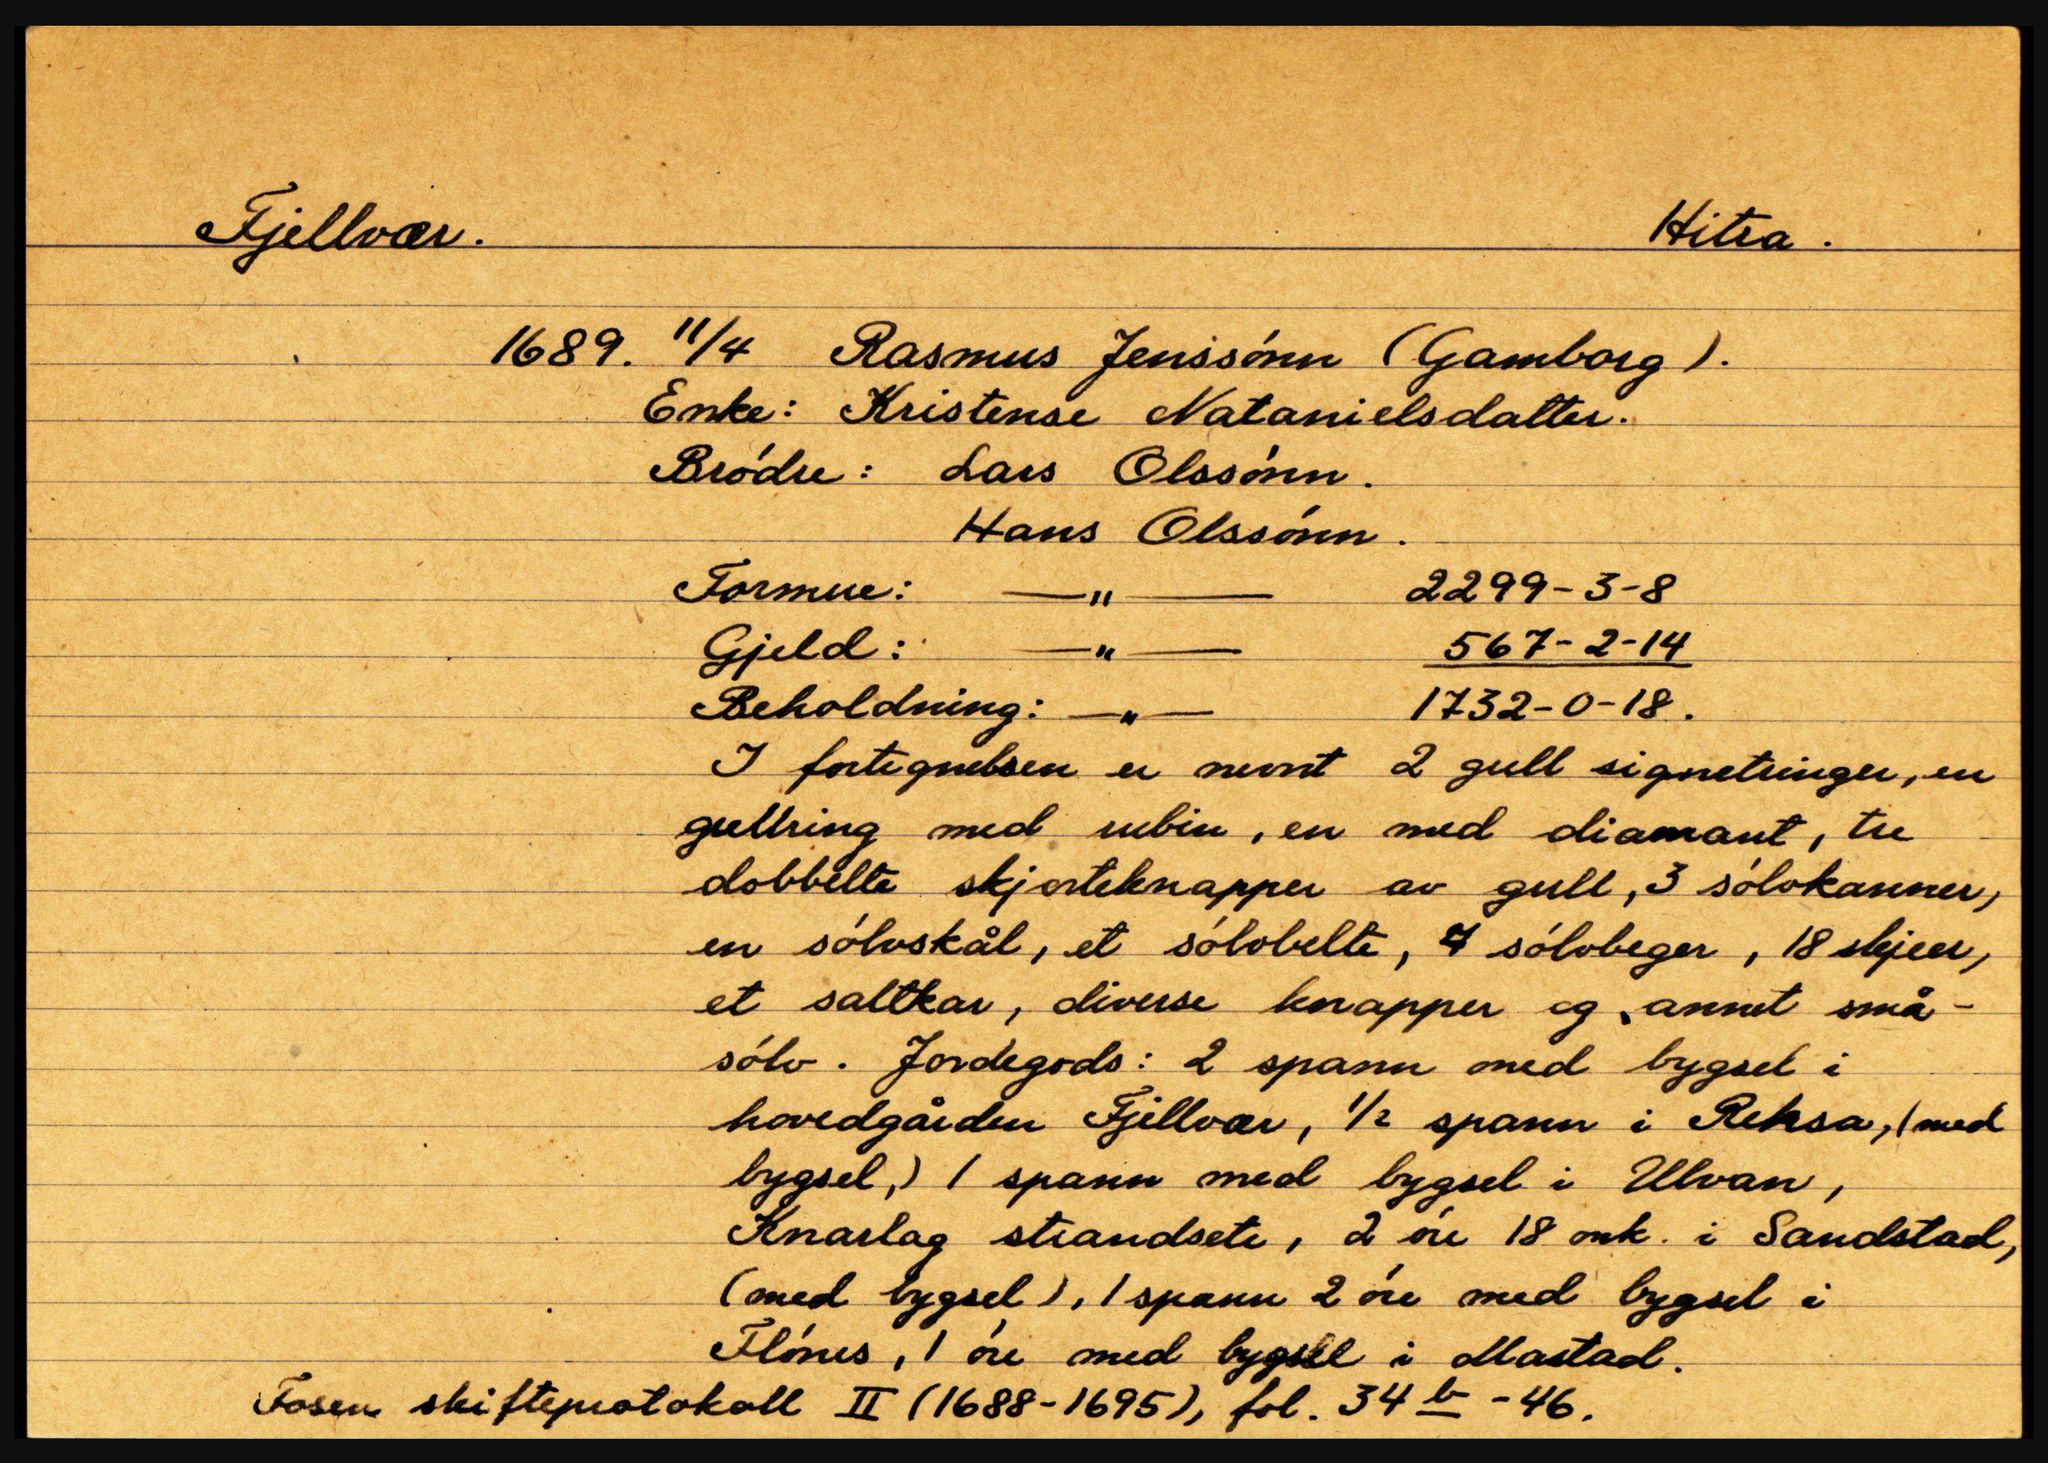 Fjellvær. Hitra.
1689. 11/4 Rasmus Jenssónn (Gamborg).
Enke: Kristense Natanielsdatter.
Bródre: Lars Olssónn.
Hans Olssónn.
Formue: —"— 2299-3-8
Gjeld: —"— 567-2-14
Beholdning: —"— 1732-0-18.
I fortegnelsen er nevnt 2 gull signetringer, en
gullring med rubin, en med diamant, tre
dobbelte skjorteknapper av gull, 3 sólvkanner,
en sólvskål, et sólvbelte, 7 sólvbeger, 18 skjeer,
et saltkar, diverse knapper og annet små-
sólv. Jordegods: 2 spann med bygsel i
hovedgården Fjellvær, 1/2 spann i Reksa, (med
bygsel,) 1 spann med bygsel i Ulvan,
Knarlag strandsete, 2 óre 18 mk. i Sandstad,
(med bygsel), 1 spann 2 óre med bygsel i
Flónes, 1 óre med bygsel i Mastad.
Fosen skifteprotokoll II (1688-1695), fol. 34 b - 46.